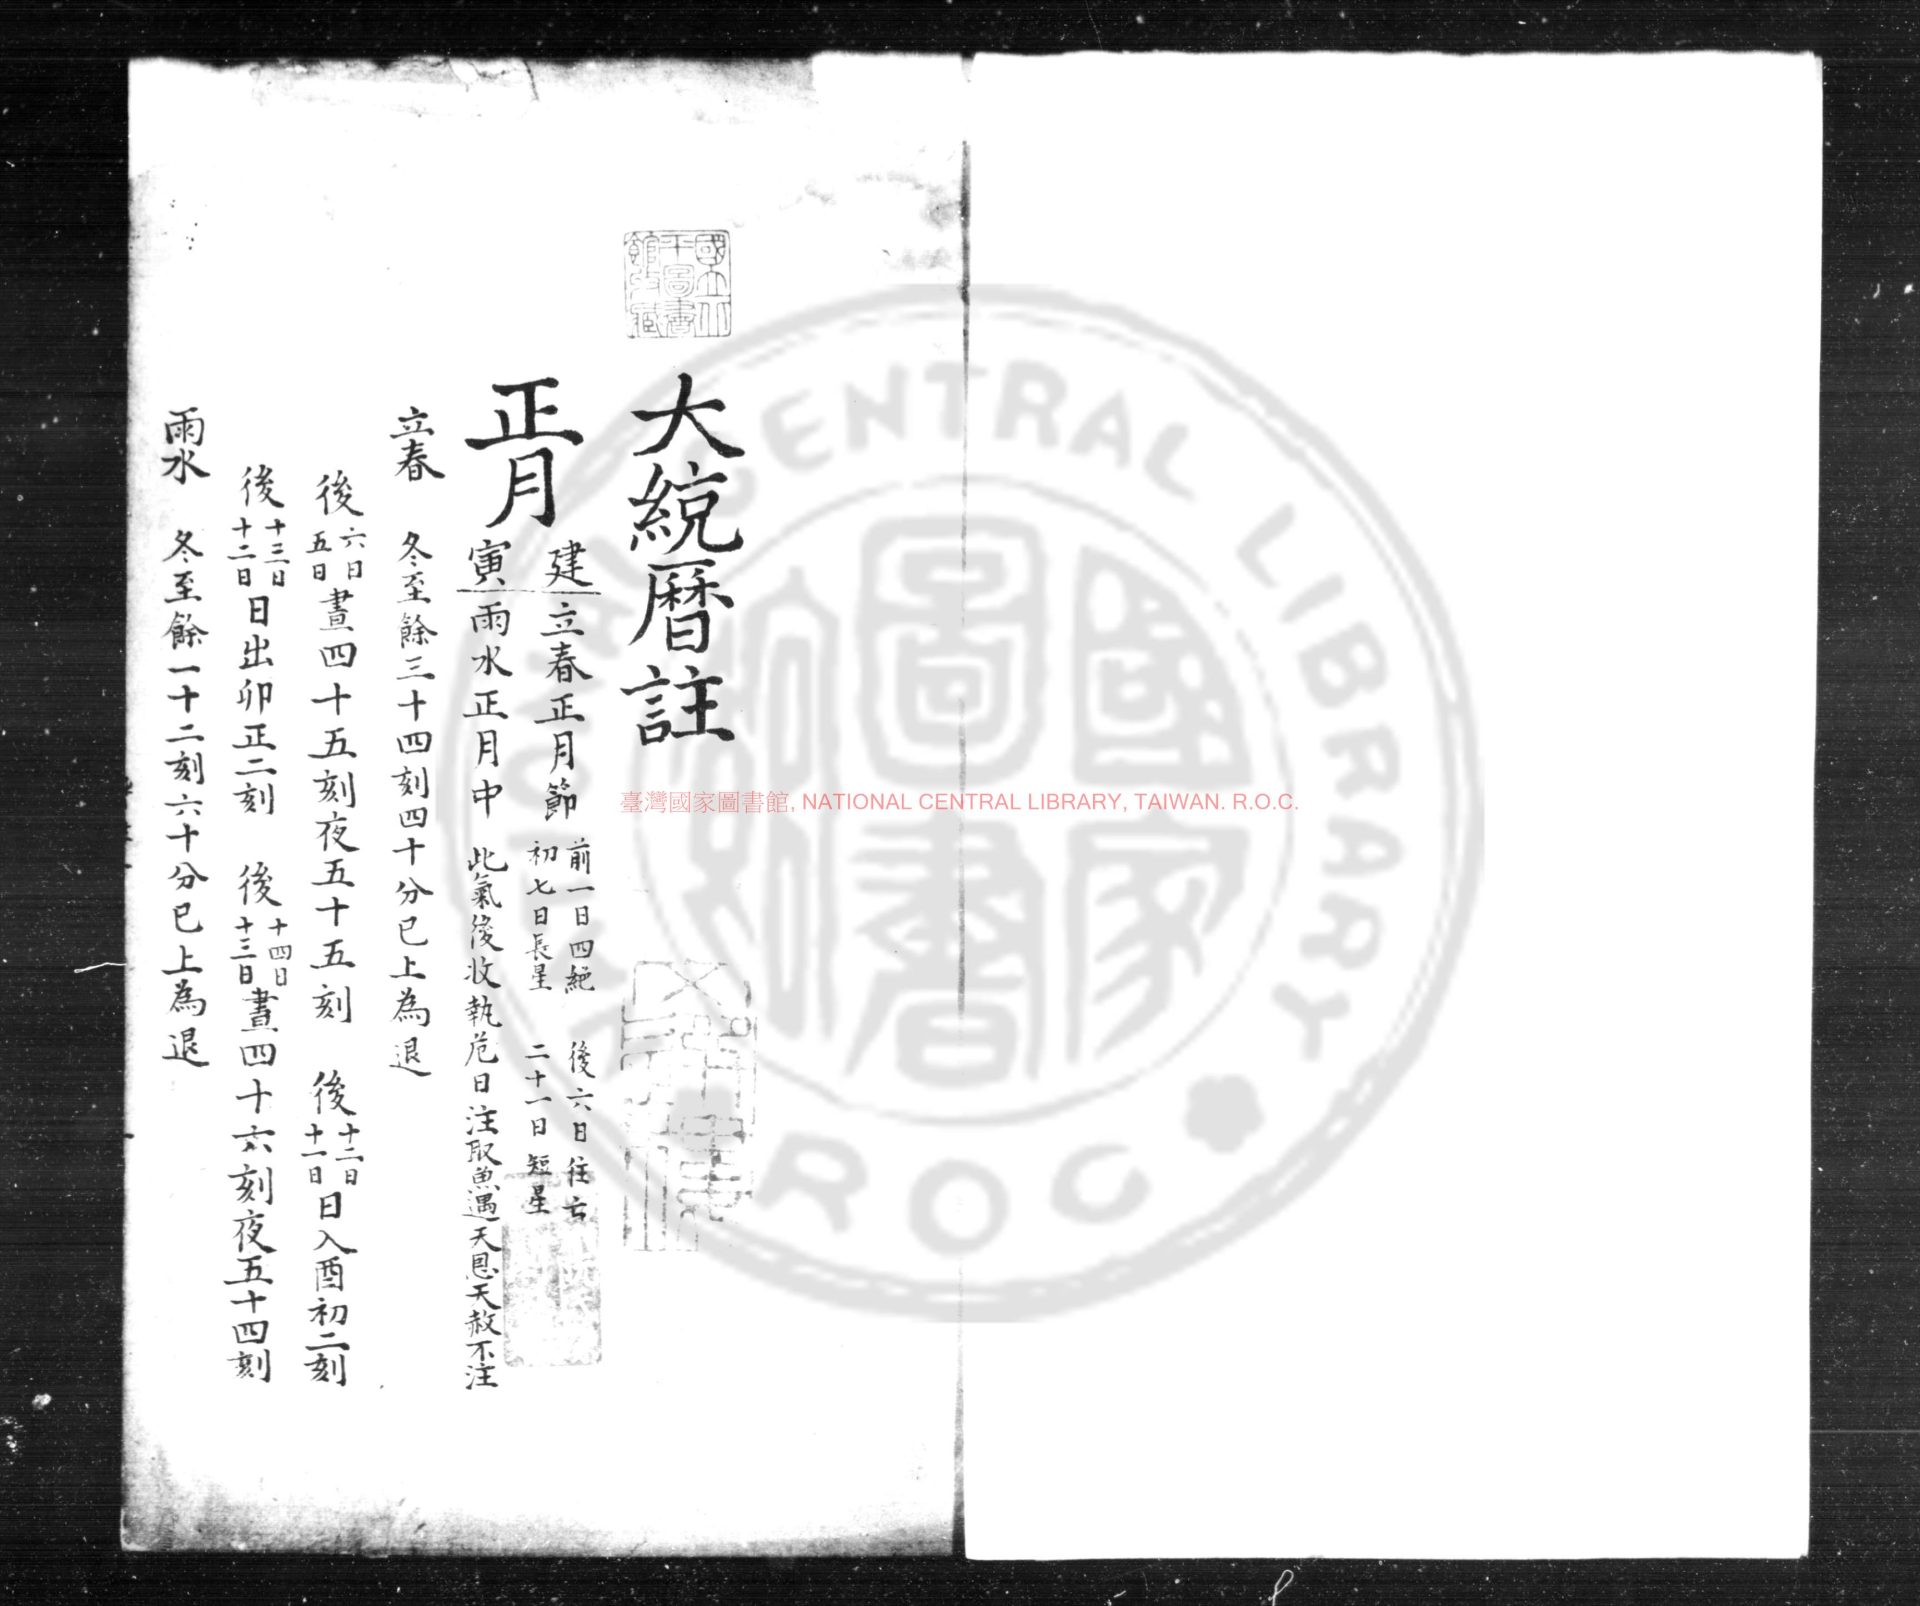 大統曆註
正月
建 立春正月節 前一日四絕 後六日往亡
初七日長星 二十一日短星
寅 雨水正月中 此氣後收執危日注取魚遇天恩天赦不注
立春 冬至餘三十四刻四十分已上為退
後六日五日晝四十五刻夜五十五刻 後十二日十一日日入酉初二刻
後十三日十二日日出卯正二刻 後十四日十三日晝四十六刻夜五十四刻
雨水 冬至餘一十二刻六十分已上為退
國立北平圖書館收藏
臺灣國家圖書館, NATIONAL CENTRAL LIBRARY, TAIWAN. R.O.C.
NATIONAL CENTRAL LIBRARY
ROC
國家圖書